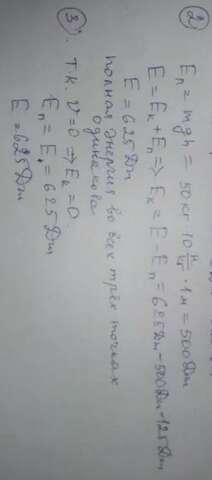 ②
Eп = mgh = 50кг · 10 Н/кг · 1м = 500Дж
E = Eк + Eп => Eк = E - Eп = 625Дж - 500Дж = 125Дж
E = 625Дж
Полная энергия во всех трёх точках
одинакова
③. Т.к. V = 0 => Eк = 0
Eп = E = 625Дж
E = 625Дж